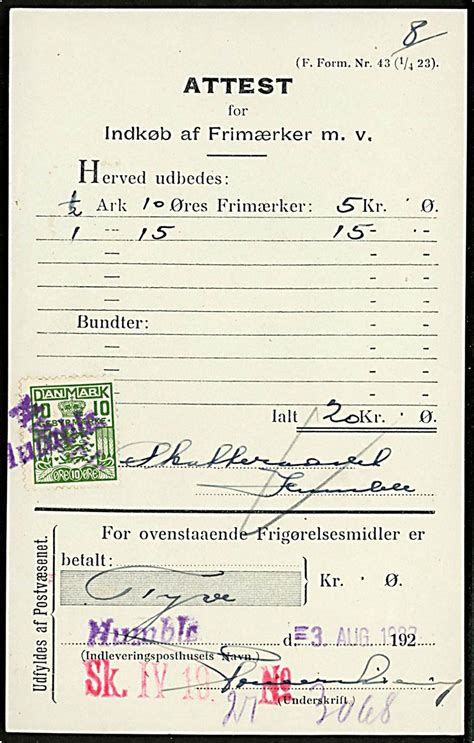 8
(F. Form. Nr. 43 (1/4 23).
ATTEST
for
Indkøb af Frimærker m. v.
Herved udbedes:
1/2 Ark 10 Øres Frimærker: 5 Kr. · Ø.
1 — 15 — 15 - · -
— — - -
— — - -
Bundter:
DANMARK
10 10
GEBYRMÆRKE
ØRE 10 ØRE
Humble
Ialt 20 Kr. · Ø.
Humble
For ovenstaaende Frigørelsesmidler er
betalt:
Tyve Kr. · Ø.
Humble d. 3. AUG 192
(Indleveringsposthusets Navn.)
Sk. IV 19. No
(Underskrift.)
27 3068
Udfyldes af Postvæsenet.